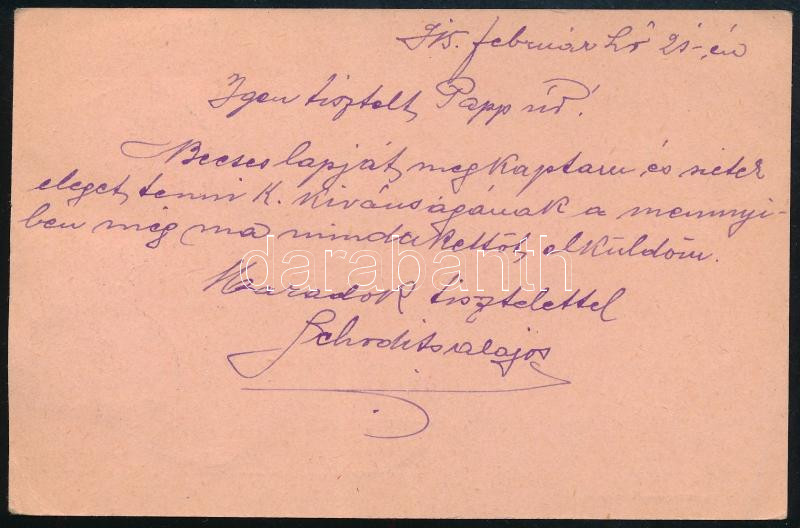 915. február hó 21-én
Igen tisztelt Papp úr!
Becses lapját megkaptam és sietek
eleget tenni K. kivánságának a mennyi-
ben még ma mindakettőt elküldöm.
darabanth
Maradok tisztelettel
Schodits Alajos